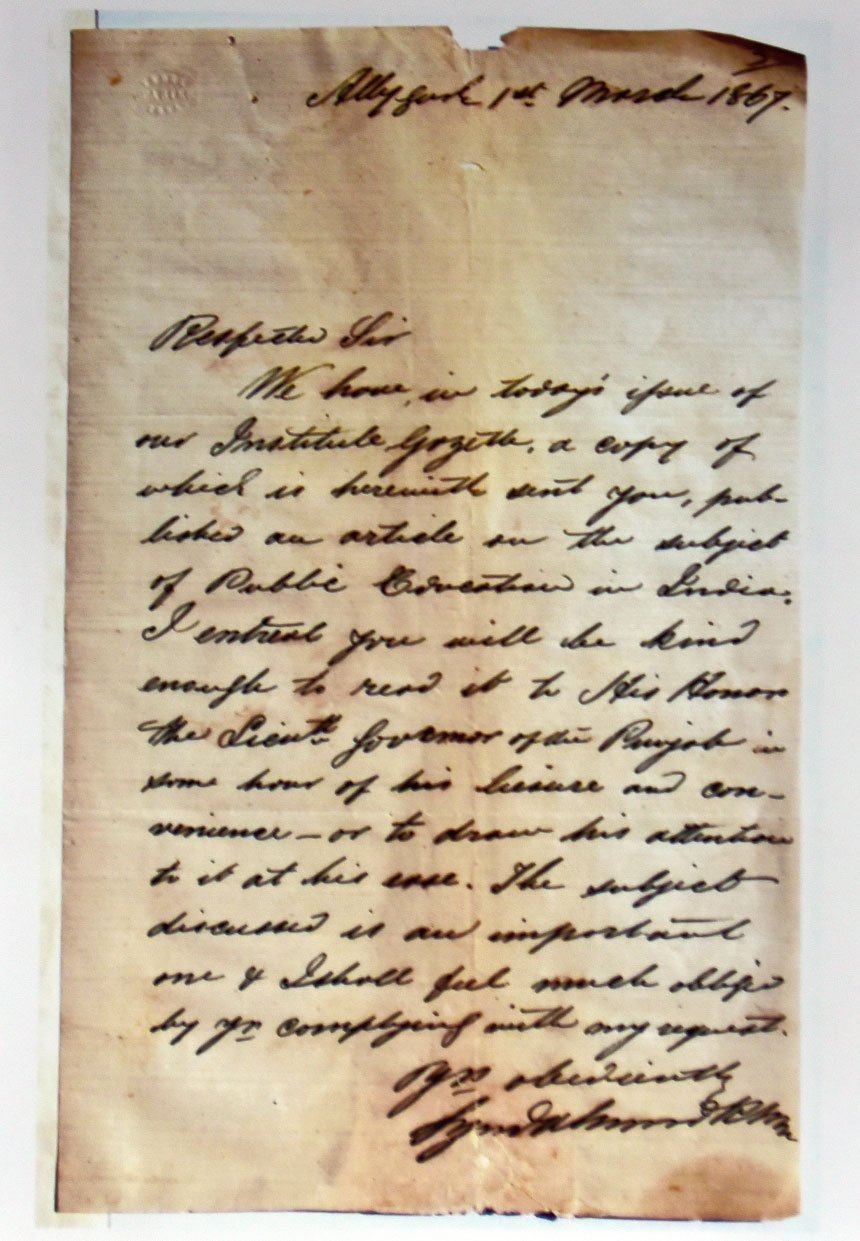 Allygurh 1st March 1867.
Respected Sir
We have, in today's issue of
our Institute Gazette, a copy of
which is herewith sent you, pub-
lished an article on the subject
of Public Education in India.
I entreat you will be kind
enough to read it to His Honor
the Lieutt. Governor of the Punjab in
some hour of his leisure and con-
venience - or to draw his attention
to it at his ease. The subject
discussed is an important
one & I shall feel much obliged
by yr complying with my request.
Yrs obediently
Syed Ahmed Khan